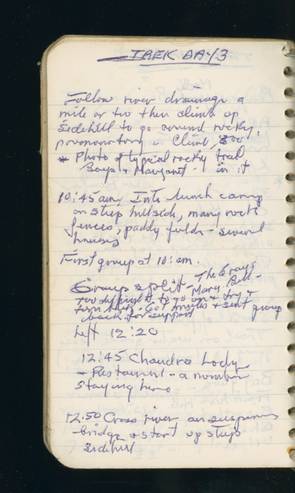 TREK DAY 3
Follow river drainage a
mile or two then climb up
sidehill to go around rocky,
promonatory. Climb 800'
* Photo of typical rocky trail
Boys & Margaret - in it
10:45 am Into lunch camp
on steep hillside, many rock
fences, paddy fields - several
houses
First group at 10: am.
Group split - The Grays
Mary, Bill -
too difficult to go on & try &
turn back - Got & sent group
back for support
Left 12:20
12:45 Chandra Lodge
& Restaurant - a number
staying here
12:50 Cross river on suspension
bridge & start up steep
sidehill